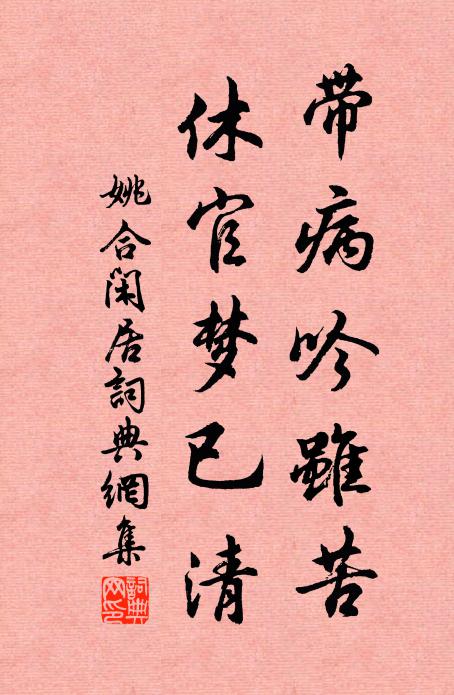 带病吟雖苦
休官梦已清
姚合闲居詞典網集
詞典网印